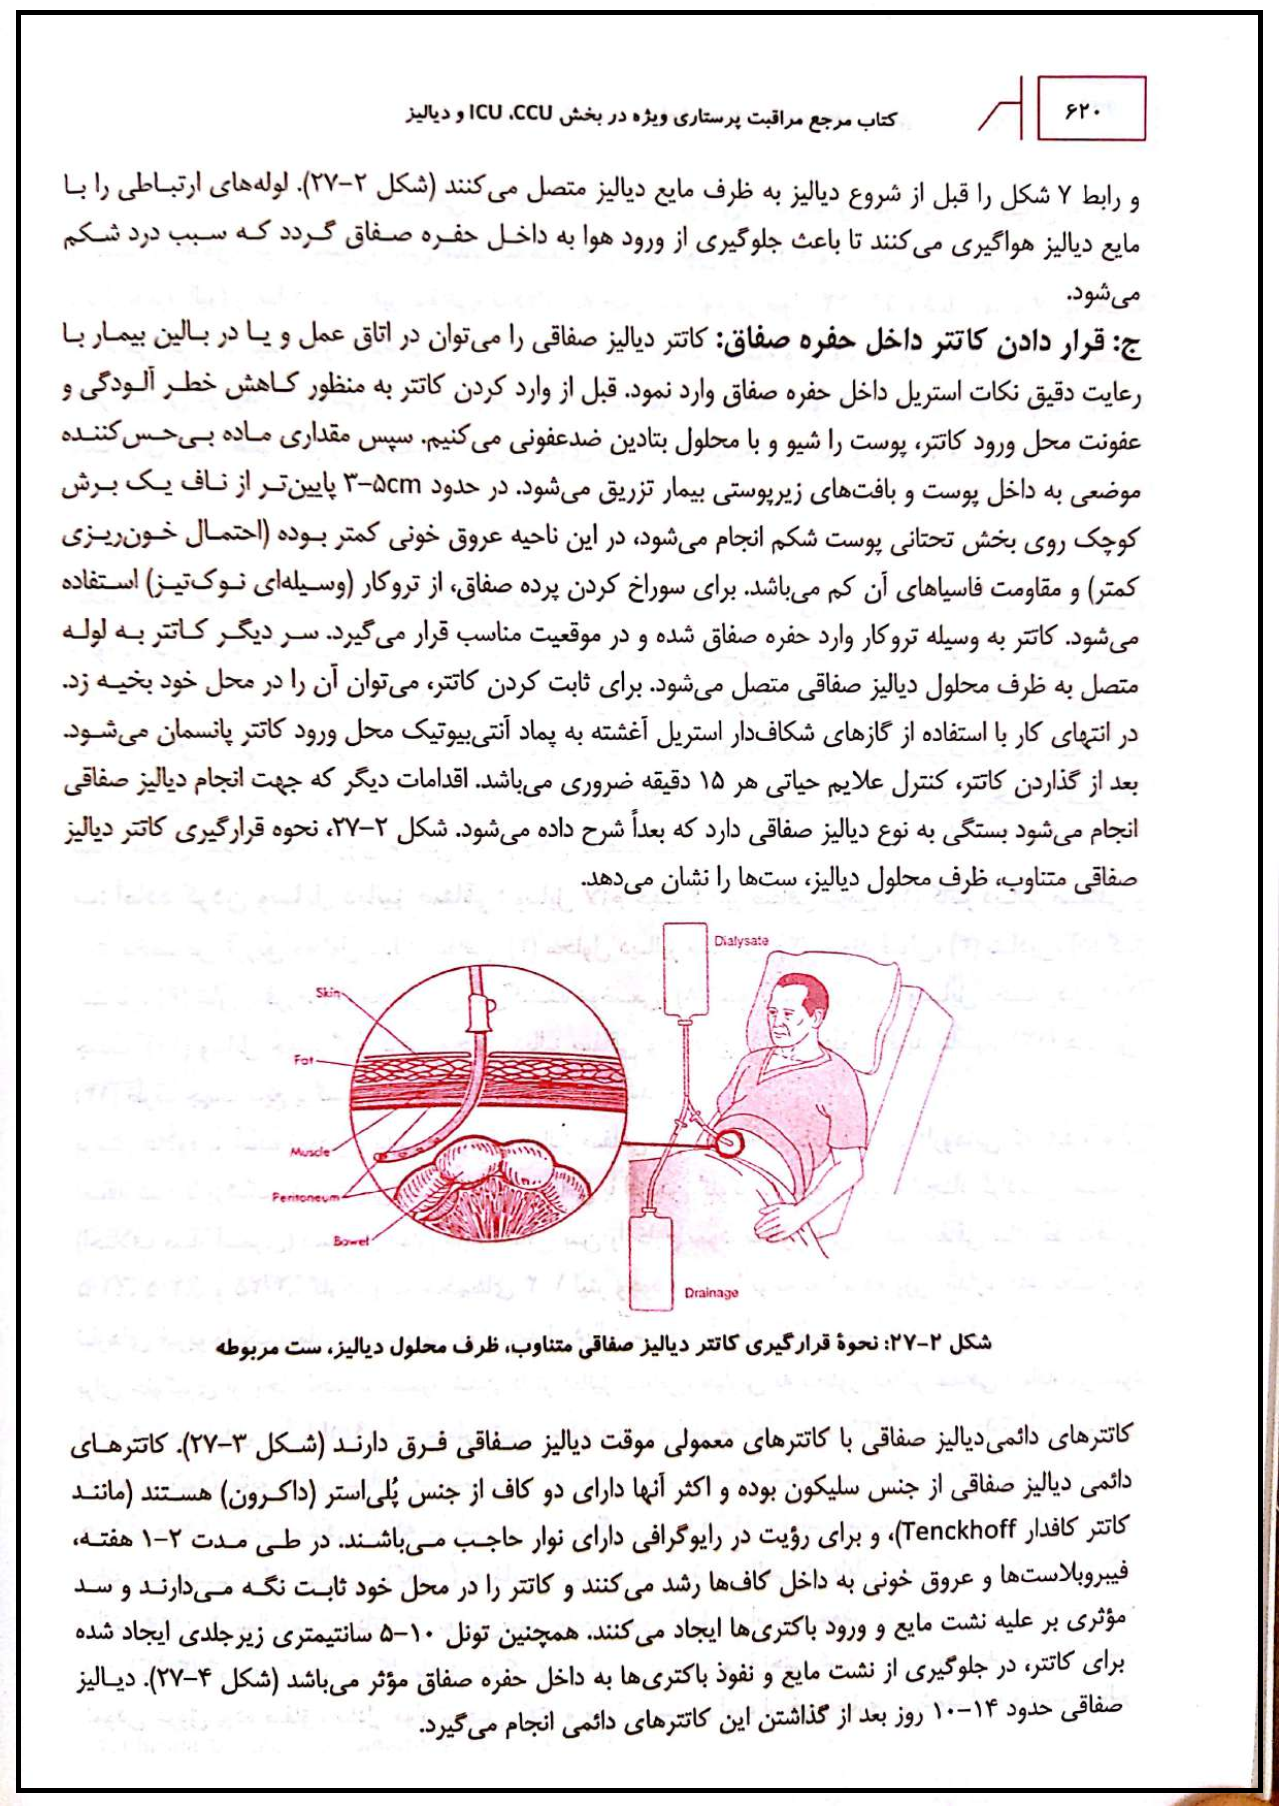 ۶۲۰
کتاب مرجع مراقبت پرستاری ویژه در بخش ICU ،CCU و دیالیز
و رابط Y شکل را قبل از شروع دیالیز به ظرف مایع دیالیز متصل می‌کنند (شکل ۲-۲۷). لوله‌های ارتباطی را با
مایع دیالیز هواگیری می‌کنند تا باعث جلوگیری از ورود هوا به داخل حفره صفاق گردد که سبب درد شکم
می‌شود.
ج: قرار دادن کاتتر داخل حفره صفاق: کاتتر دیالیز صفاقی را می‌توان در اتاق عمل و یا در بالین بیمار با
رعایت دقیق نکات استریل داخل حفره صفاق وارد نمود. قبل از وارد کردن کاتتر به منظور کاهش خطر آلودگی و
عفونت محل ورود کاتتر، پوست را شیو و با محلول بتادین ضدعفونی می‌کنیم. سپس مقداری ماده بی‌حس‌کننده
موضعی به داخل پوست و بافت‌های زیرپوستی بیمار تزریق می‌شود. در حدود ۳-۵cm پایین‌تر از ناف یک برش
کوچک روی بخش تحتانی پوست شکم انجام می‌شود، در این ناحیه عروق خونی کمتر بوده (احتمال خون‌ریزی
کمتر) و مقاومت فاسیاهای آن کم می‌باشد. برای سوراخ کردن پرده صفاق، از تروکار (وسیله‌ای نوک‌تیز) استفاده
می‌شود. کاتتر به وسیله تروکار وارد حفره صفاق شده و در موقعیت مناسب قرار می‌گیرد. سر دیگر کاتتر به لوله
متصل به ظرف محلول دیالیز صفاقی متصل می‌شود. برای ثابت کردن کاتتر، می‌توان آن را در محل خود بخیه زد.
در انتهای کار با استفاده از گازهای شکاف‌دار استریل آغشته به پماد آنتی‌بیوتیک محل ورود کاتتر پانسمان می‌شود.
بعد از گذاردن کاتتر، کنترل علایم حیاتی هر ۱۵ دقیقه ضروری می‌باشد. اقدامات دیگر که جهت انجام دیالیز صفاقی
انجام می‌شود بستگی به نوع دیالیز صفاقی دارد که بعداً شرح داده می‌شود. شکل ۲-۲۷، نحوه قرارگیری کاتتر دیالیز
صفاقی متناوب، ظرف محلول دیالیز، ست‌ها را نشان می‌دهد.
Dialysate
Skin
Fat
Muscle
Peritoneum
Bowel
Drainage
شکل ۲-۲۷: نحوهٔ قرارگیری کاتتر دیالیز صفاقی متناوب، ظرف محلول دیالیز، ست مربوطه
کاتترهای دائمی‌دیالیز صفاقی با کاتترهای معمولی موقت دیالیز صفاقی فرق دارند (شکل ۳-۲۷). کاتترهای
دائمی دیالیز صفاقی از جنس سلیکون بوده و اکثر آنها دارای دو کاف از جنس پُلی‌استر (داکرون) هستند (مانند
کاتتر کافدار Tenckhoff)، و برای رؤیت در رایوگرافی دارای نوار حاجب می‌باشند. در طی مدت ۲-۱ هفته،
فیبروبلاست‌ها و عروق خونی به داخل کاف‌ها رشد می‌کنند و کاتتر را در محل خود ثابت نگه می‌دارند و سد
مؤثری بر علیه نشت مایع و ورود باکتری‌ها ایجاد می‌کنند. همچنین تونل ۱۰-۵ سانتیمتری زیرجلدی ایجاد شده
برای کاتتر، در جلوگیری از نشت مایع و نفوذ باکتری‌ها به داخل حفره صفاق مؤثر می‌باشد (شکل ۴-۲۷). دیالیز
صفاقی حدود ۱۴-۱۰ روز بعد از گذاشتن این کاتترهای دائمی انجام می‌گیرد.